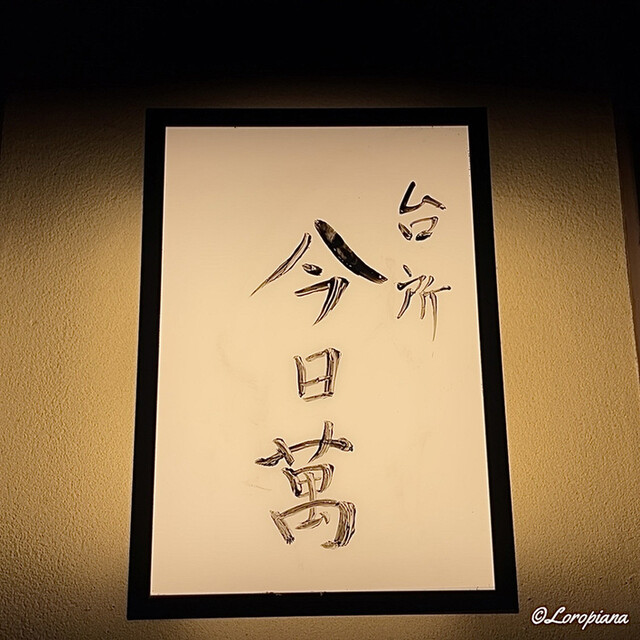 台所
今日萬
©Loropiana